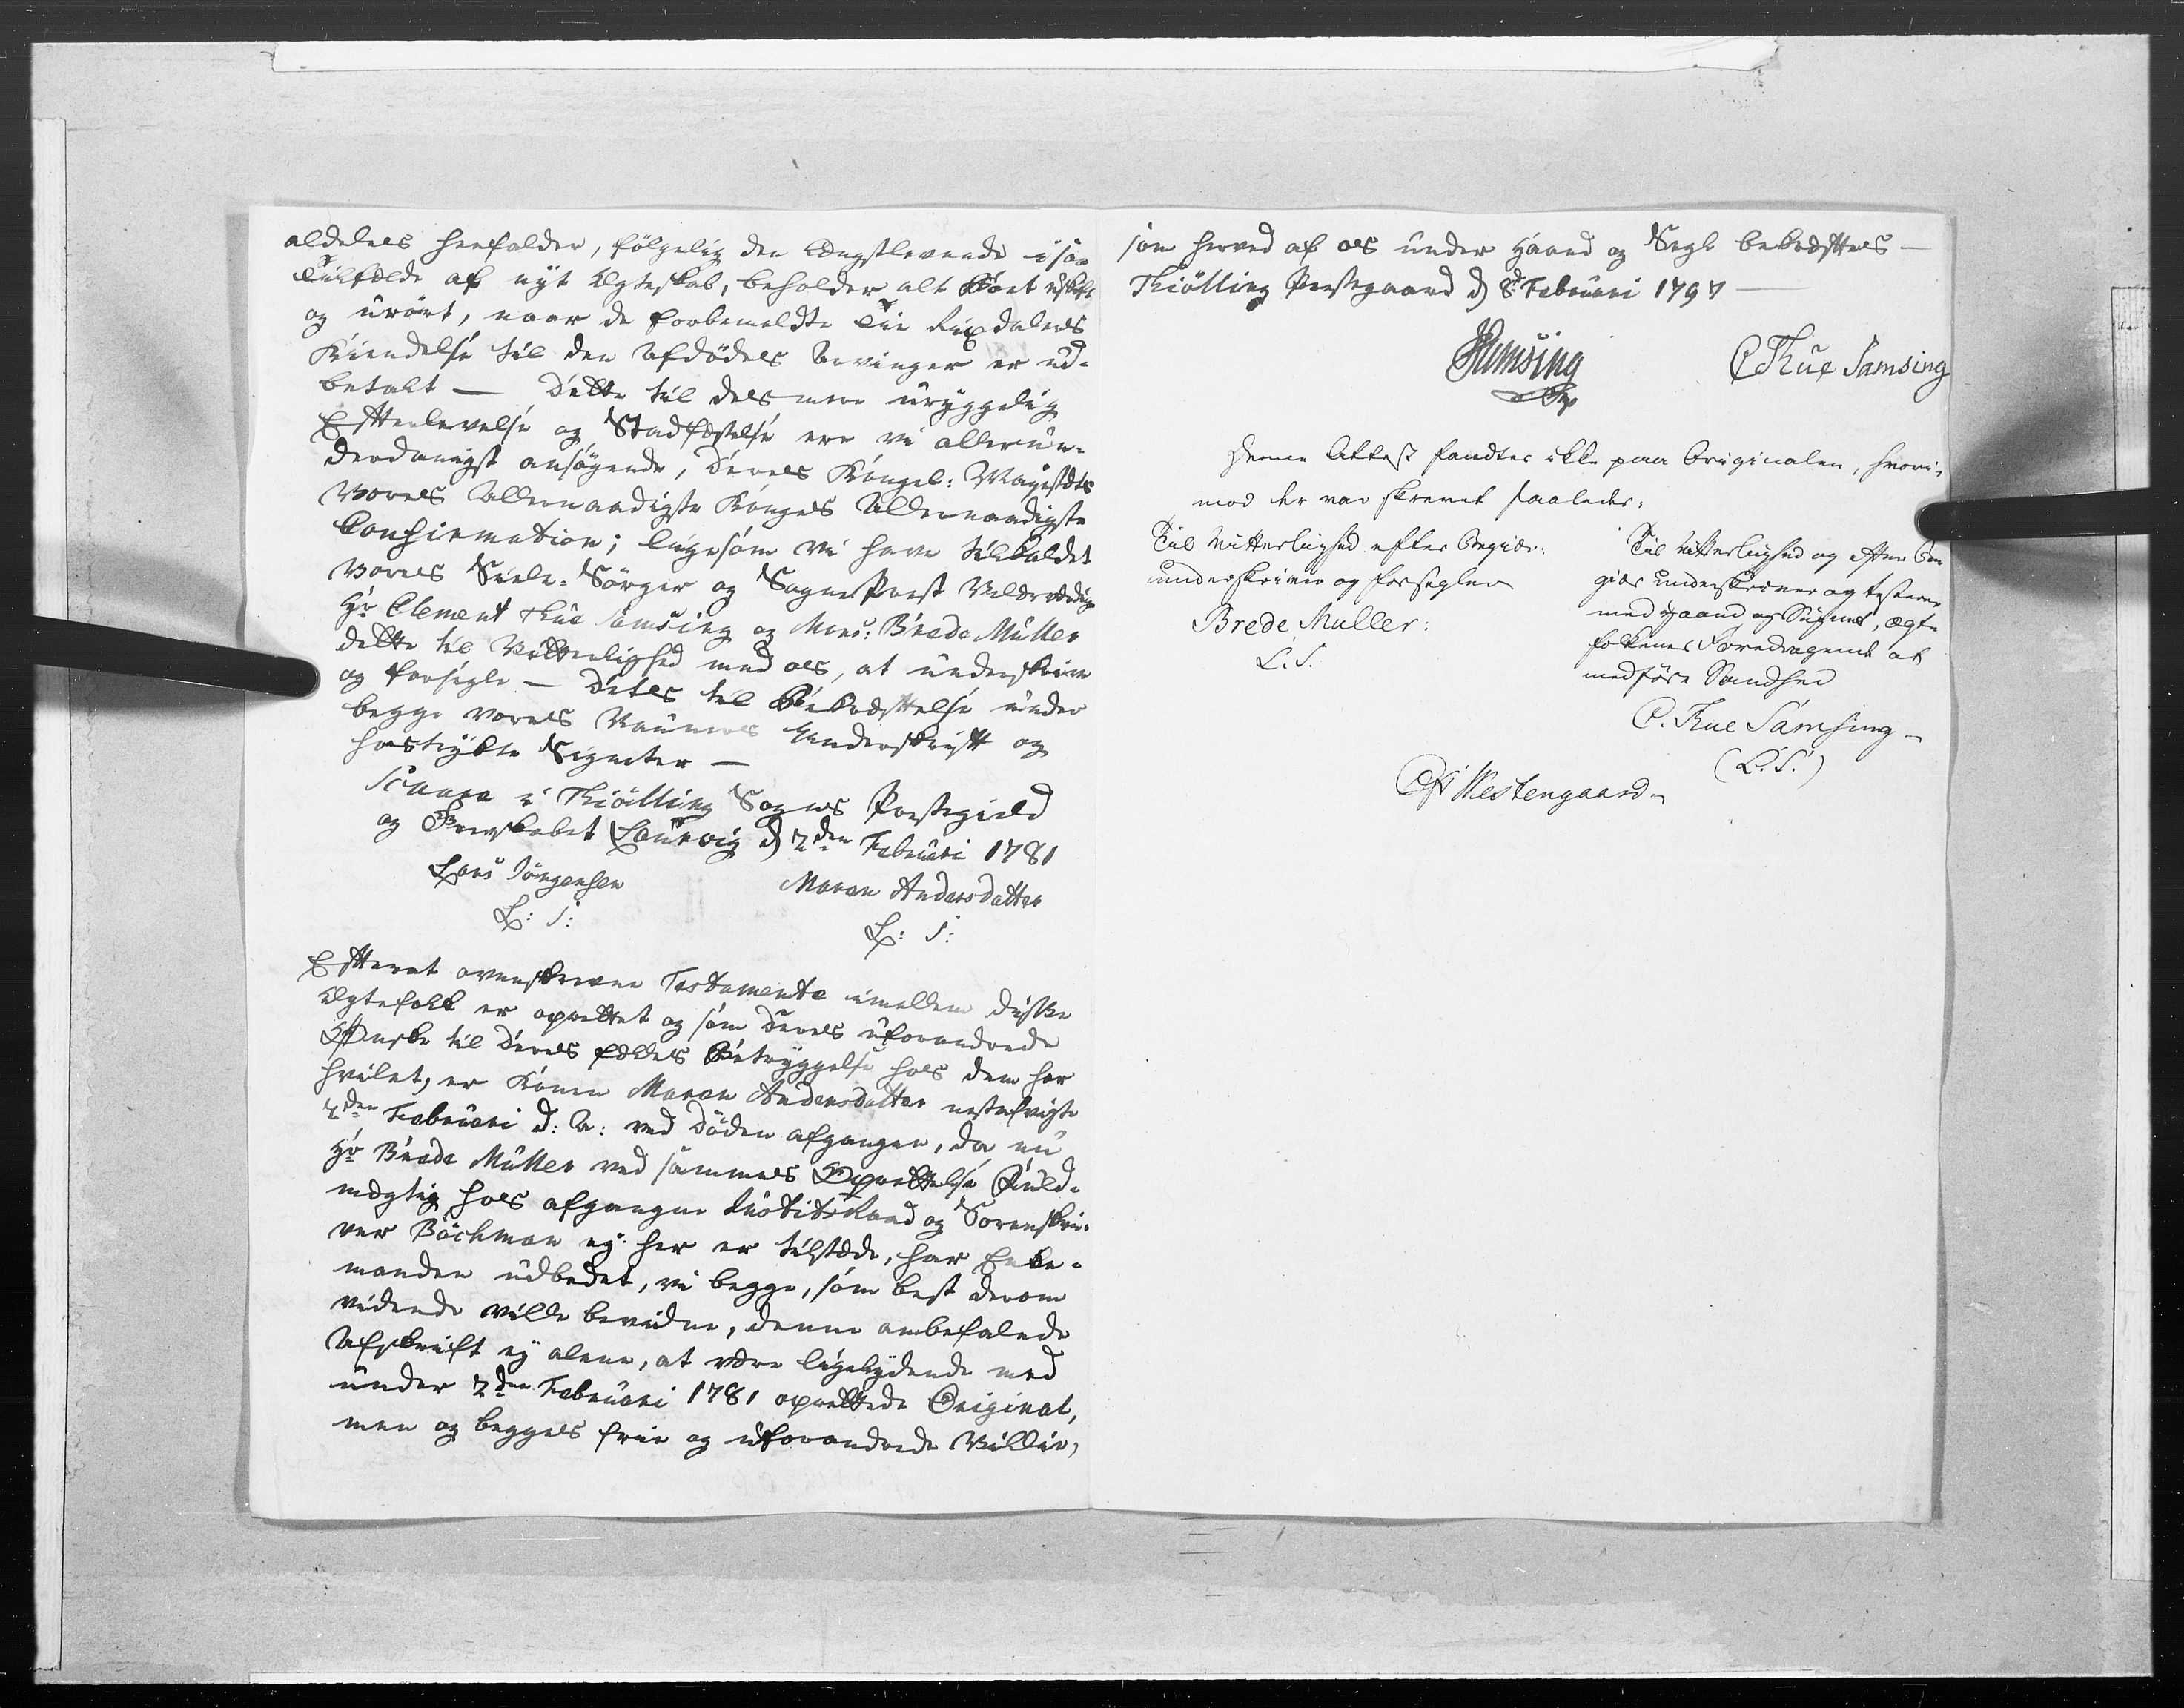 aldeles henfalder, følgelig den Længstlevende i saa
Tilfælde af nyt Ægteskab, beholder alt Boet uskift
og urørt, naar de forbemeldte Tie Rixdalers
Kiendelse til den Afdødes Arvinger er ud-
betalt — Dette til desmere uryggelig
Efterlevelse og Stadfæstelse ere vi allerun-
derdanigst ansøgende, Deres Kongel: Mayestæts
Vores Allernaadigste Konges Allernaadigste
Confirmation; ligesom vi have tilkaldet
Vores Siele-Sørger og SognePræst Velærværdige
Hr Clement Rüe Samsing og Mons: Brede Müller
dette til Vitterlighed med os, at underskrive
og forsegle — Dets til Bekræftelse under
begge vores Naunes Underskrift og
hostrykte Signeter —
i Thiølling Sogns Præstegield
og Grevskabet Laurvig d 2den Februari 1781
Lars Jörgensen Maren Andersdatter
L: S: L: S:
Efterat ovenskrevne Testamente imellem diske
Ægtefolk er oprettet og som Deres uforandrede
Ønske til Deres fælles Betryggelse hos dem har
hvilet, er Konen Maren Andersdatter nestafvigte
4den Februari d: A: ved Døden afgangen, da nu
Hr Brede Müller ved sammes Oprettelse Fuld-
mægtig hos afgangne Justitsraad og Sorenskri-
ver Böckman ej her er tilstæde, har Enke-
manden udbedet, vi begge, som best derom
vidende ville bevidne, denne anbefalede
Afskrift ej alene, at være ligelydende med
under 2den Februari 1781 oprettede Original,
men og begges frie og uforandrede Villie,
som herved af os under Haand og Segl bekræftes —
Thiølling Præstegaard d 8de Februari 1797 —
Samsing C Rüe Samsing
Denne Attest fandtes ikke paa Originalen, hvori-
mod der var skrevet saaledes:
Til Vitterlighed efter Begiær:
underskriver og forsegler
Brede Müller:
L. S.
Til Vitterlighed og efter Be
giær underskriver og testerer
med Haand og Signet, ægte
folkenes Foredragende at
medføre Sandhed
C. Rue Samsing —
(L. S.)
Westengaard